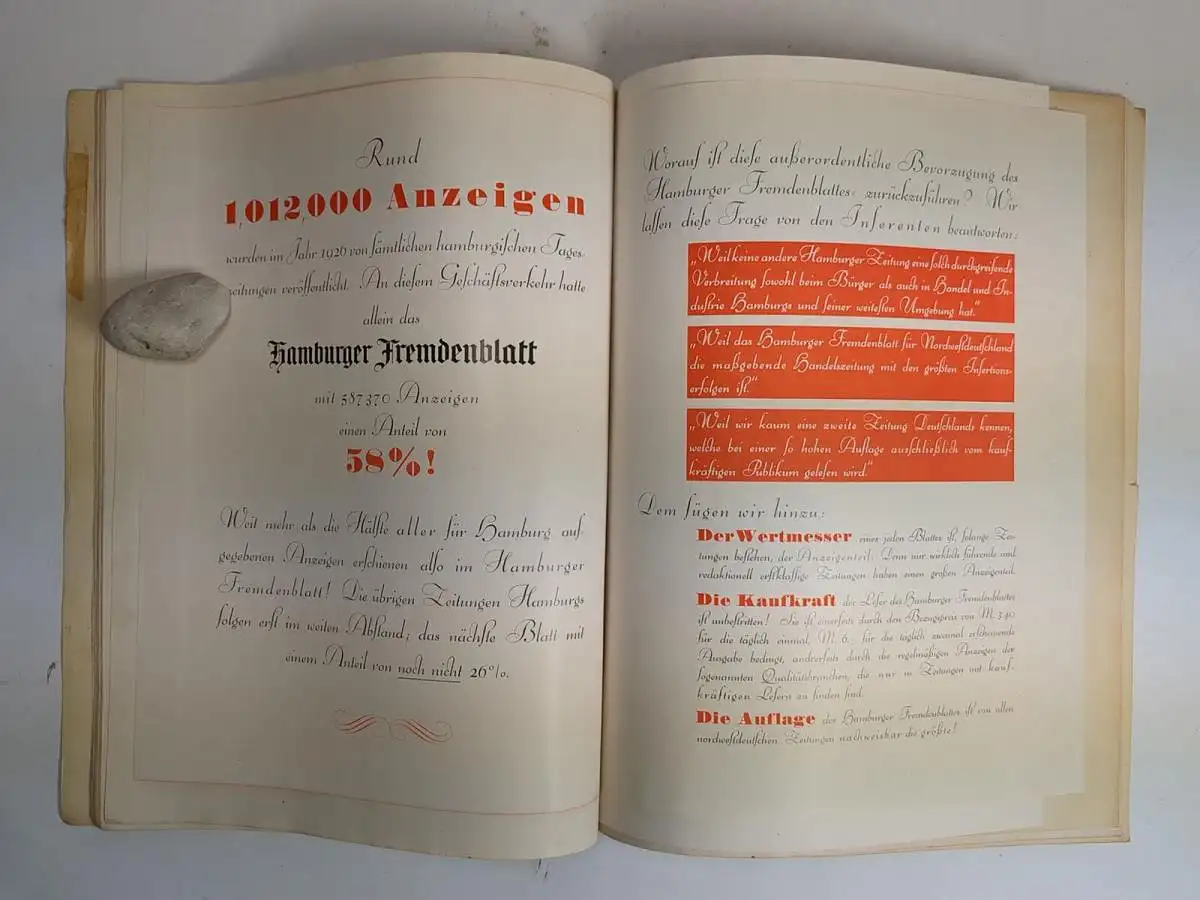 Rund
1,012,000 Anzeigen
wurden im Jahr 1926 von sämtlichen hamburgischen Tages-
zeitungen veröffentlicht. An diesem Geschäftsverkehr hatte
allein das
Hamburger Fremdenblatt
mit 587370 Anzeigen
einen Anteil von
58%!
Weit mehr als die Hälfte aller für Hamburg auf-
gegebenen Anzeigen erschienen also im Hamburger
Fremdenblatt! Die übrigen Zeitungen Hamburgs
folgen erst im weiten Abstand; das nächste Blatt mit
einem Anteil von noch nicht 26%.
Worauf ist diese außerordentliche Bevorzugung des
Hamburger Fremdenblattes zurückzuführen? Wir
lassen diese Frage von den Inserenten beantworten:
„Weil keine andere Hamburger Zeitung eine solch durchgreifende
Verbreitung sowohl beim Bürger als auch in Handel und In-
dustrie Hamburgs und seiner weitesten Umgebung hat."
„Weil das Hamburger Fremdenblatt für Nordwestdeutschland
die maßgebende Handelszeitung mit den größten Insertions-
erfolgen ist."
„Weil wir kaum eine zweite Zeitung Deutschlands kennen,
welche bei einer so hohen Auflage ausschließlich vom kauf-
kräftigen Publikum gelesen wird."
Dem fügen wir hinzu:
Der Wertmesser eines jeden Blattes ist, solange Zei-
tungen bestehen, der Anzeigenteil. Denn nur wirklich führende und
redaktionell erstklassige Zeitungen haben einen großen Anzeigenteil.
Die Kaufkraft der Leser des Hamburger Fremdenblattes
ist unbestritten! Sie ist einerseits durch den Bezugspreis von M. 3.40
für die täglich einmal, M. 6.- für die täglich zweimal erscheinende
Ausgabe bedingt, andrerseits durch die regelmäßigen Anzeigen der
sogenannten Qualitätsbranchen, die nur in Zeitungen mit kauf-
kräftigen Lesern zu finden sind.
Die Auflage des Hamburger Fremdenblattes ist von allen
nordwestdeutschen Zeitungen nachweisbar die größte!